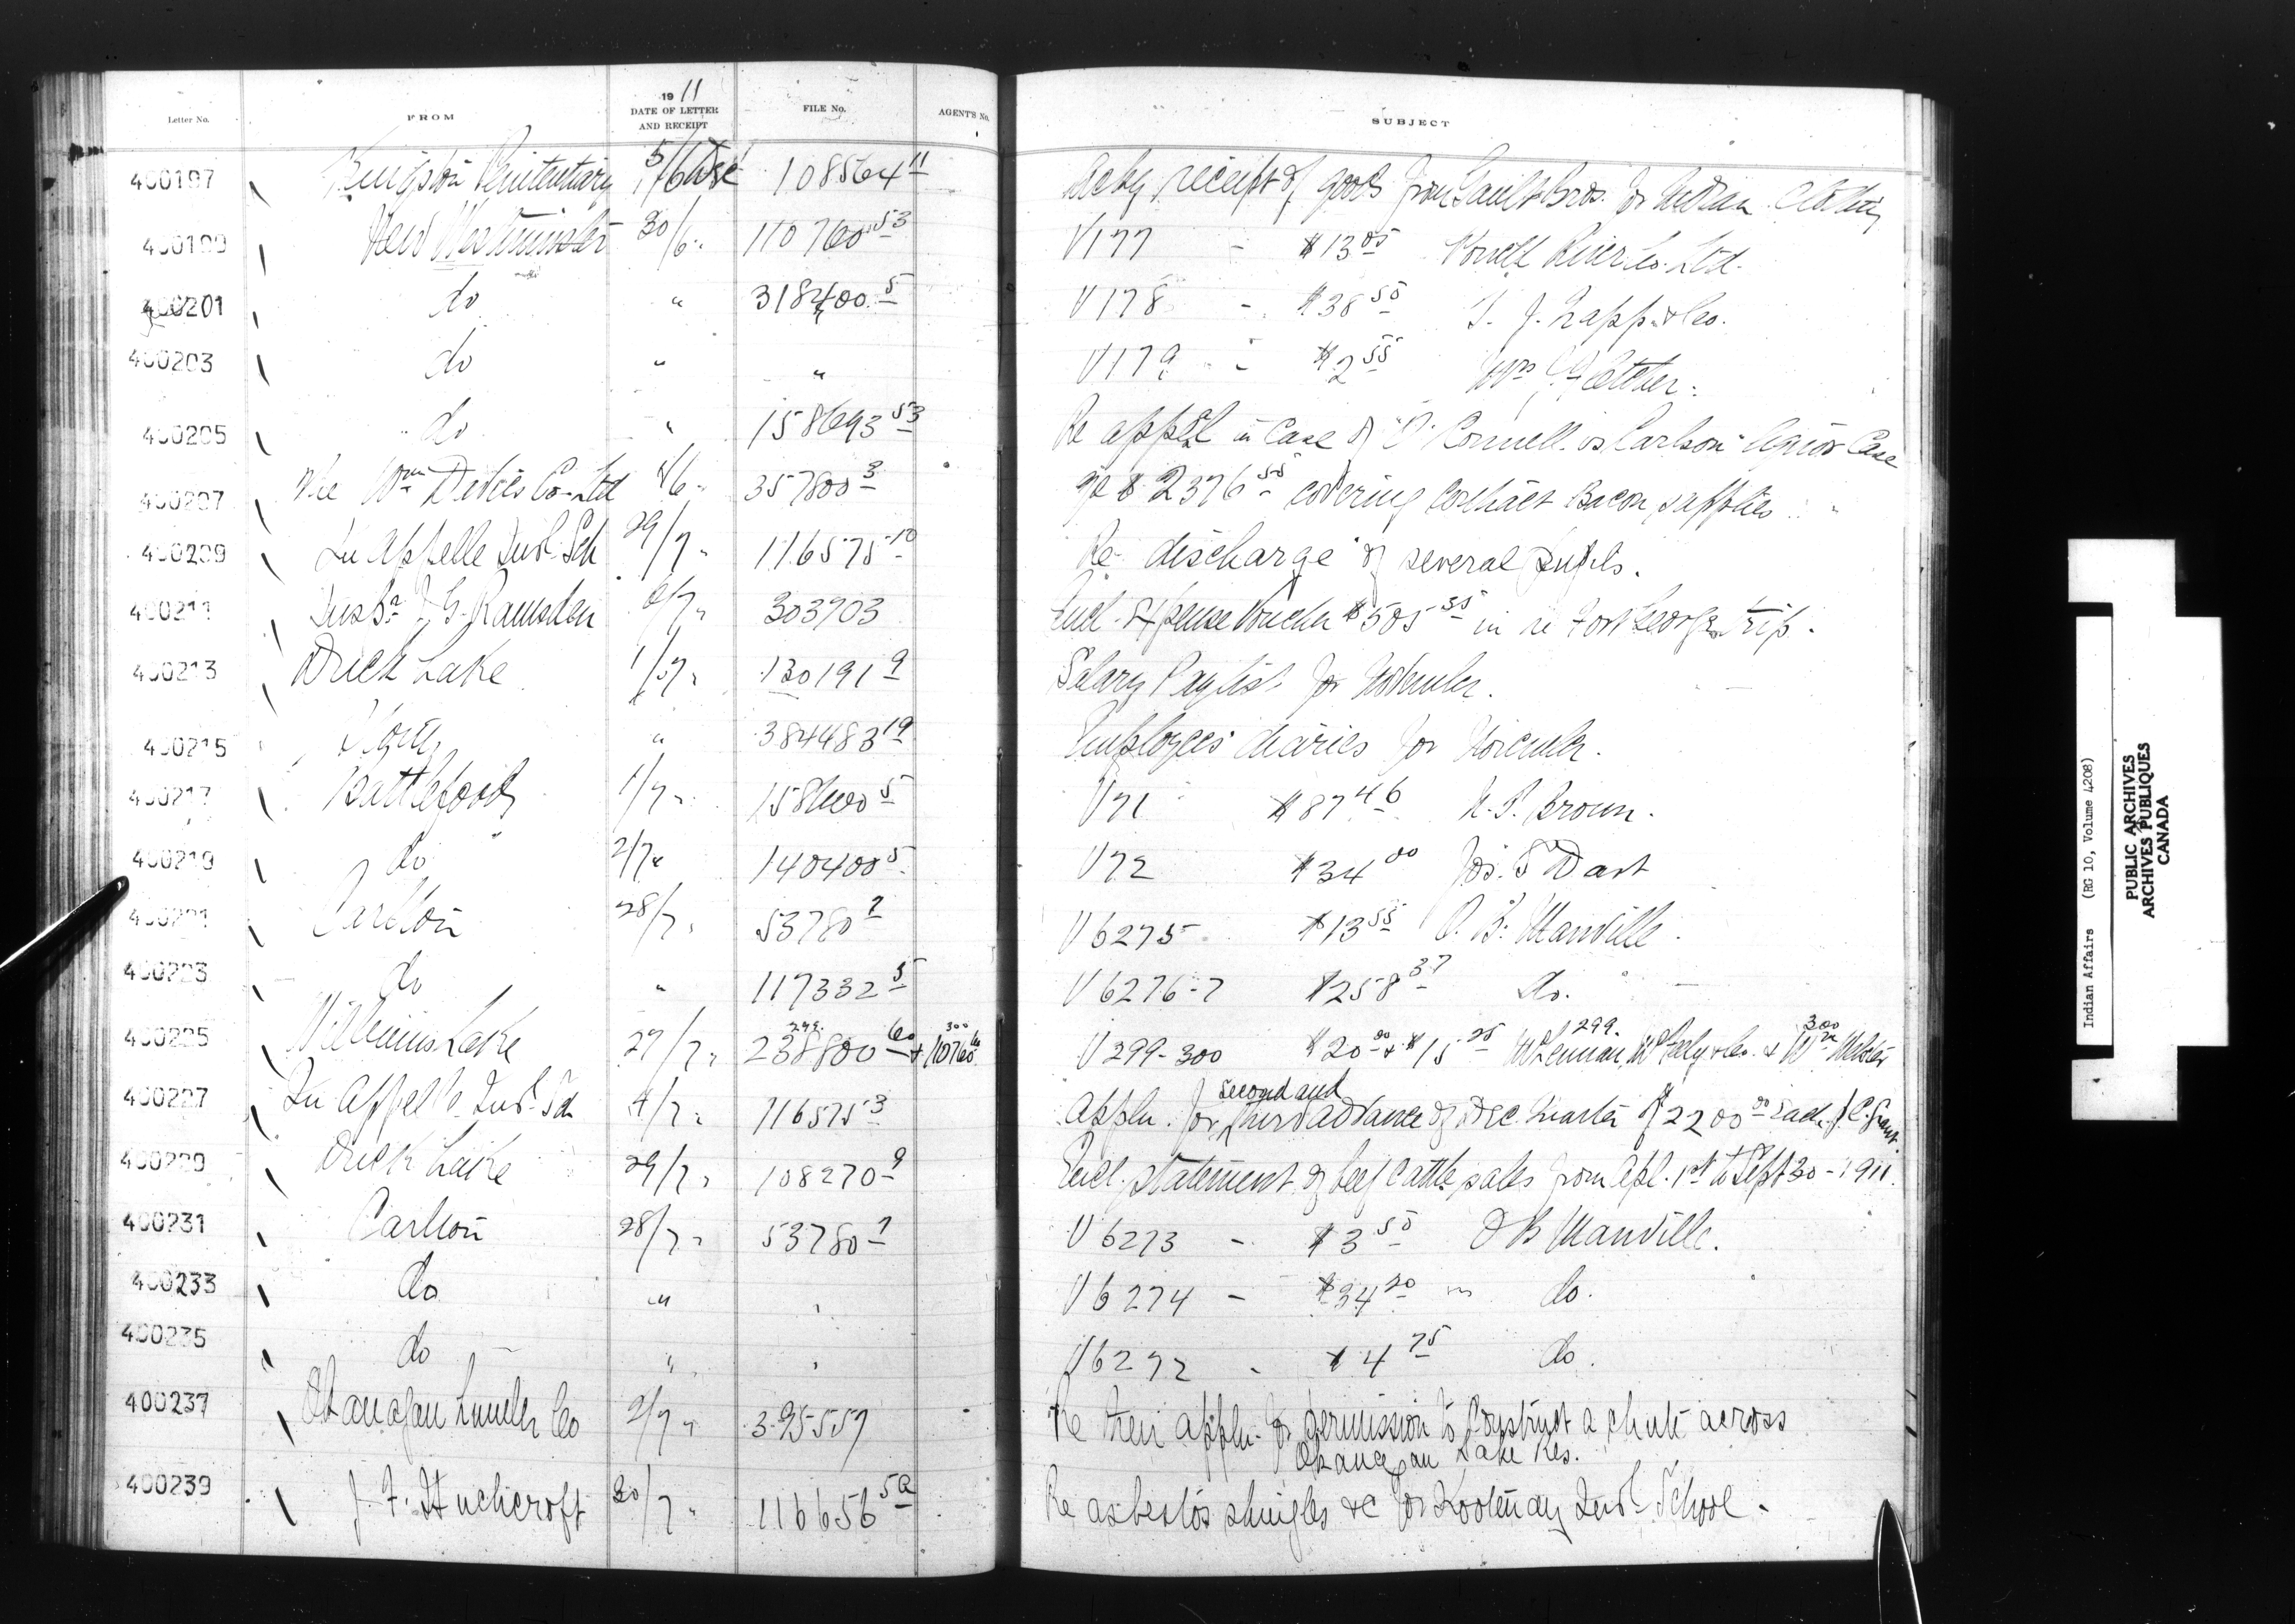 Letter No. FROM 1911 DATE OF LETTER AND RECEIPT FILE No. AGENT'S No. SUBJECT
400197 Kingston Penitentiary 5/6 Dec 108564 11 receipt of goods from Gault Bros. for Indian Clothing
400199 New Westminster 30/6 " 110760 53 V177 - $13 05 Powell River Co. Ltd.
400201 do " 318400 5 V178 - $38 50 T. J. Trapp & Co.
400203 do " " V179 - $2 55
400205 do " 158693 53 Re appeal in Case of O'Connell vs Carlson liquor Case
400207 The Wm Davies Co. Ltd 4/6 " 357800 3 $2376 55 covering Contract Bacon supplies
400209 Qu'Appelle Indl. Sch 29/7 " 116575 10 Re discharge of several pupils.
400211 Inspr. J. G. Ramsden 6/7 " 303903 Encl. Expense Voucher $505 35 in re Fort George trip.
400213 Duck Lake 1/7 " 130191 9 Salary Paylist for November.
400215 " 384483 19 Employees' diaries for November.
400217 Battleford 1/7 " 158600 5 V71 $87 46 Brown.
400219 do 2/7 " 140400 5 V72 $34 00 Jos. Dart
400221 Carlton 28/7 " 53780 7 V6275 $13 55 O. B. Manville
400223 do " 117332 5 V6276-7 $258 37 do.
400225 Williams Lake 27/7 " 299. 238800 60 + 300 110760 V299-300 $20 00 & $15 25 299. McLennan, McFeely & Co. & 300 Wm
400227 Qu'Appelle Indl. Sch 4/7 " 116575 3 Appln. for second and third advance of Dec. Quarter $2200 00 each. P.C. Grant
400229 Duck Lake 29/7 " 108270 9 Encl. statement of beef cattle sales from Apl. 1st to Sept 30 - 1911.
400231 Carlton 28/7 " 53780 7 V6273 - $3 50 O B Manville.
400233 do " " V6274 - $34 20 do.
400235 do " " V6272 - $4 75 do.
400237 Okanagan Lumber Co 2/7 " 395557 Re their appln. for permission to Construct a chute across
Okanagan Lake Res.
400239 J. F. Huchcroft 30/7 " 116656 5a Re asbestos shingles &c for Kootenay Indl. School.
Indian Affairs (RG 10, Volume 4208)
PUBLIC ARCHIVES
ARCHIVES PUBLIQUES
CANADA